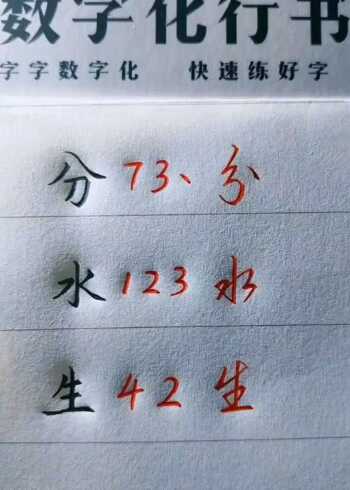 数字化行书
字字数字化 快速练好字
分 73、分
水 123 水
生 42 生